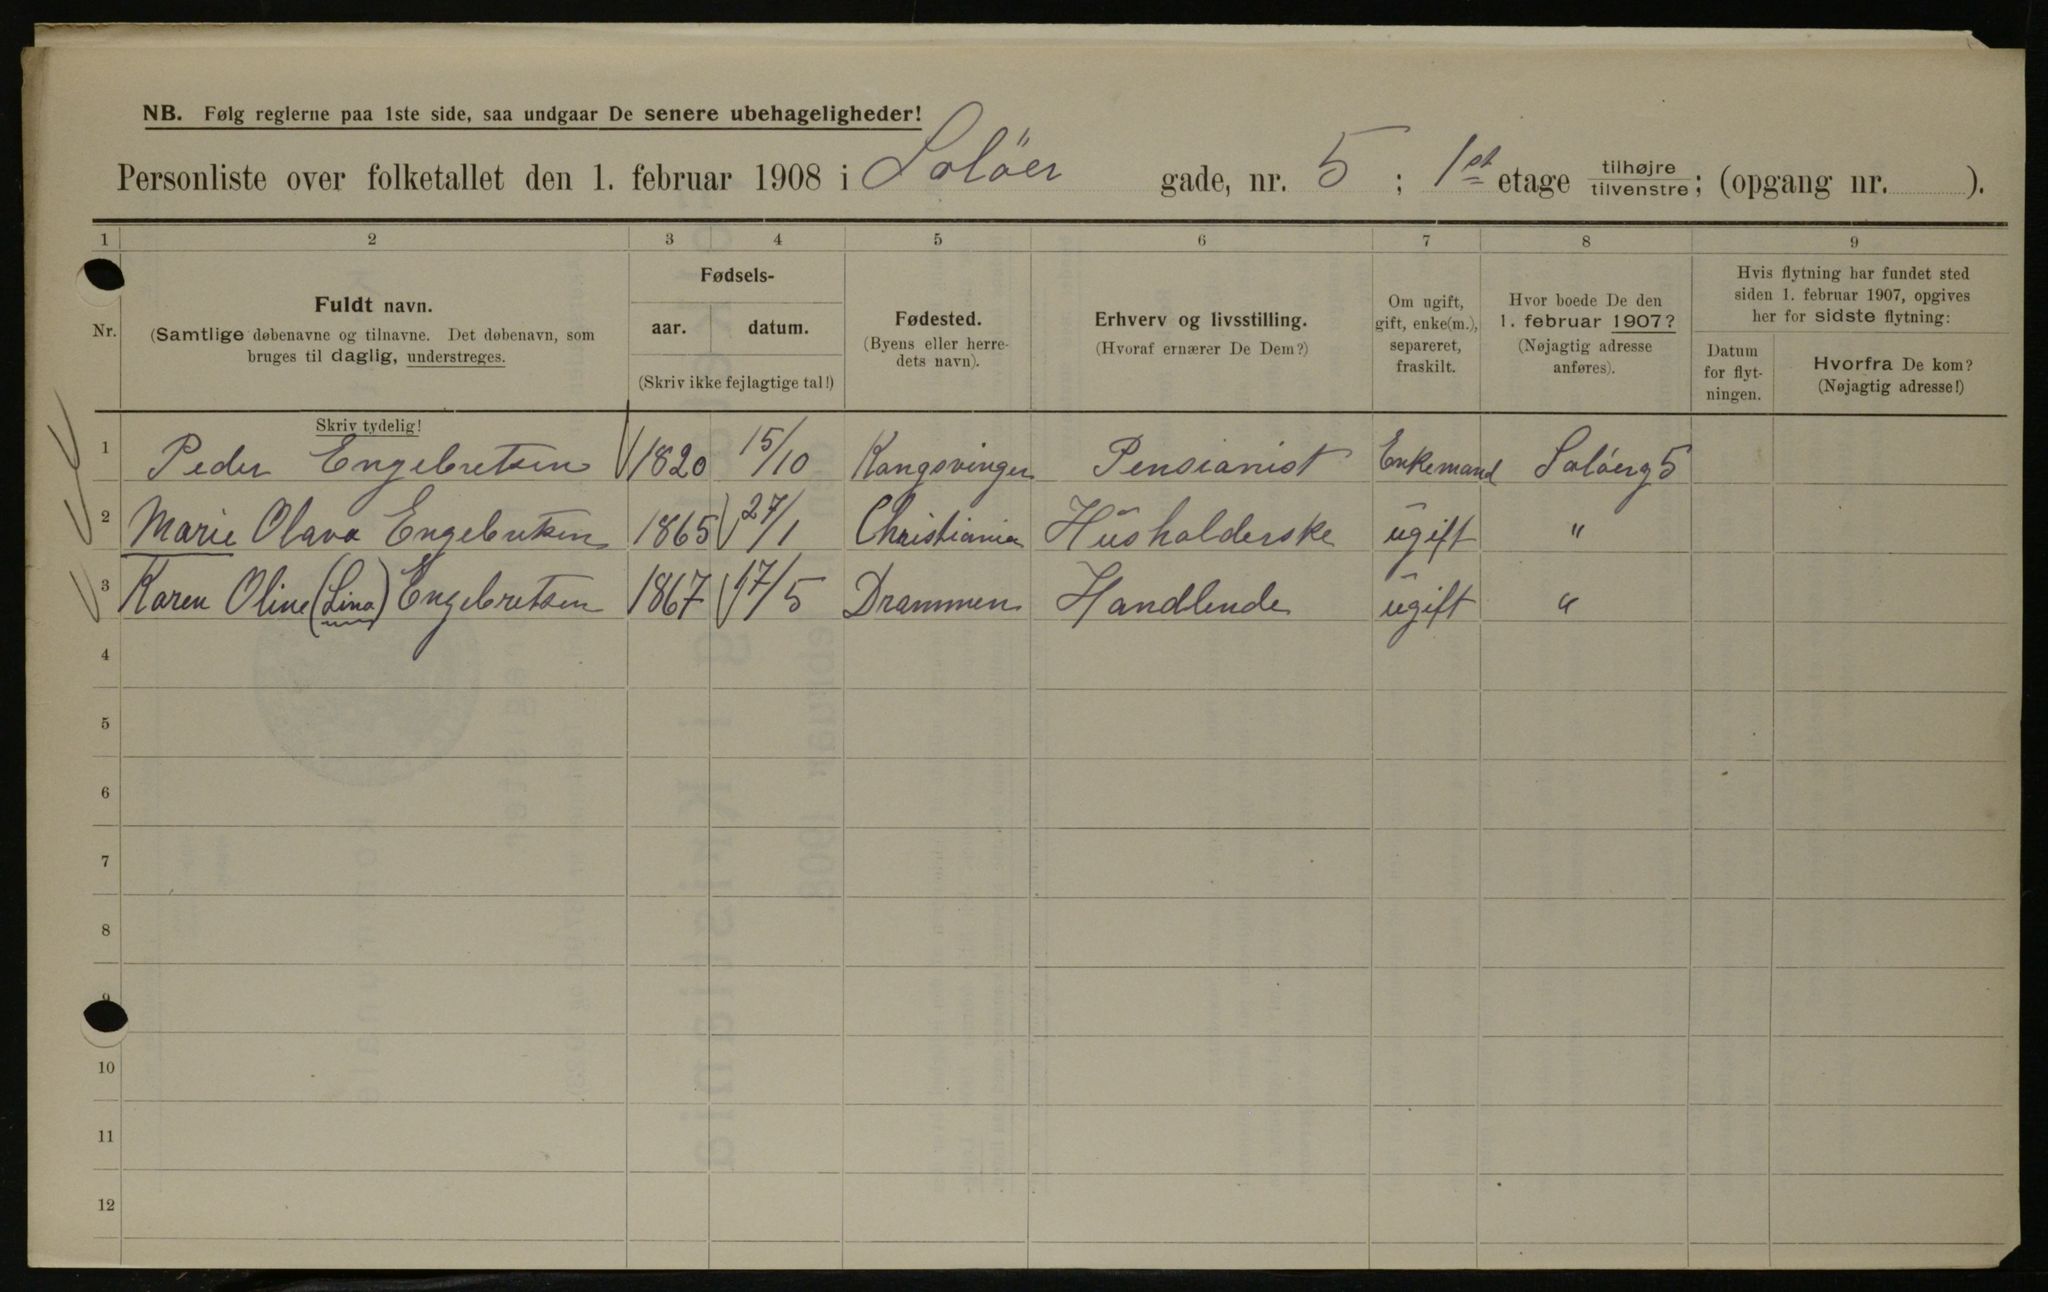 NB. Følg reglerne paa 1ste side, saa undgaar De senere ubehageligheder!
Personliste over folketallet den 1. februar 1908 i Solöer gade, nr. 5; 1st etage tilhøjre/tilvenstre; (opgang nr. ).
1 2 3 4 5 6 7 8 9
Nr.
Fuldt navn.
(Samtlige døbenavne og tilnavne. Det døbenavn, som
bruges til daglig, understreges.
Skriv tydelig!
Fødsels-
aar. datum.
(Skriv ikke fejlagtige tal!)
Fødested.
(Byens eller herre-
dets navn).
Erhverv og livsstilling.
(Hvoraf ernærer De Dem?)
Om ugift,
gift, enke(m.),
separeret,
fraskilt.
Hvor boede De den
1. februar 1907?
(Nøjagtig adresse
anføres).
Hvis flytning har fundet sted
siden 1. februar 1907, opgives
her for sidste flytning:
Datum
for flyt-
ningen.
Hvorfra De kom?
(Nøjagtig adresse!)
1 Peder Engebretsen 1820 15/10 Kongsvinger Pensianist Enkemand Solöerg 5
2 Marie Olava Engebretsen 1865 27/1 Christiania Husholderske ugift "
3 Karen Oline (Lina) Engebretsen 1867 17/5 Drammen Handlende ugift "
4
5
6
7
8
9
10
11
12